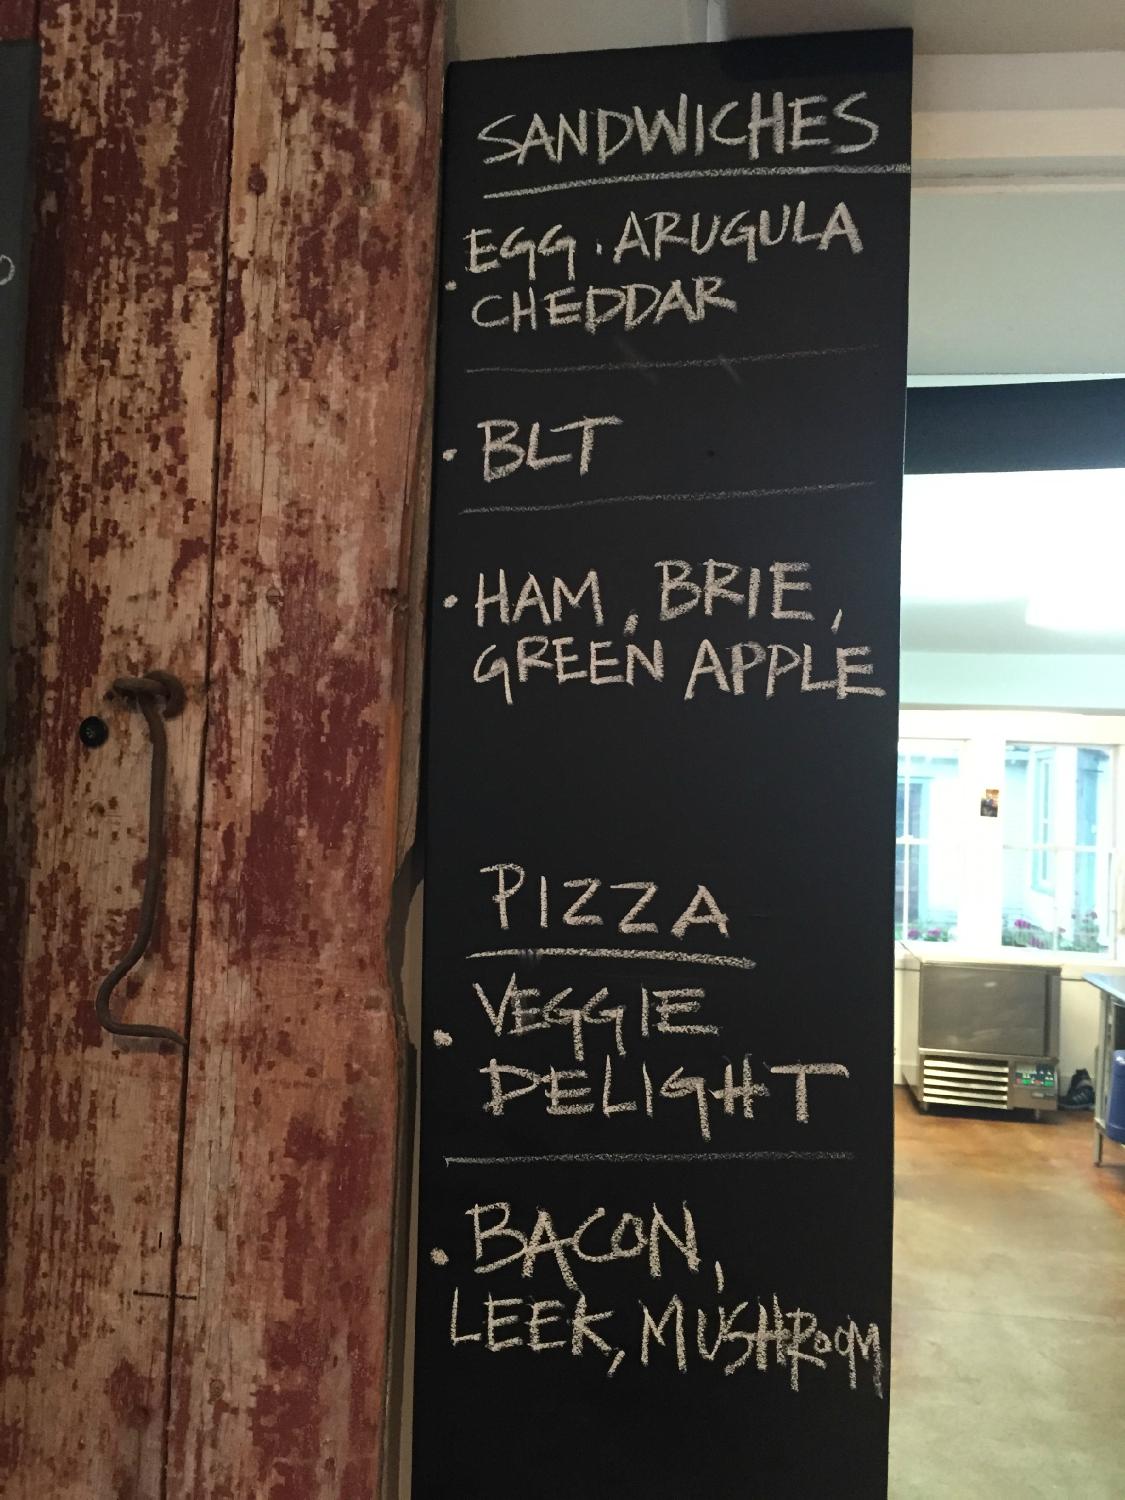 SANDWICHES
EGG · ARUGULA
· CHEDDAR
· BLT
· HAM, BRIE,
GREEN APPLE
PIZZA
VEGGIE
· DELIGHT
· BACON,
LEEK, MUSHROOM